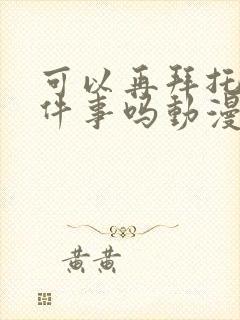 可以再拜托
件事吗動漫
黄黄